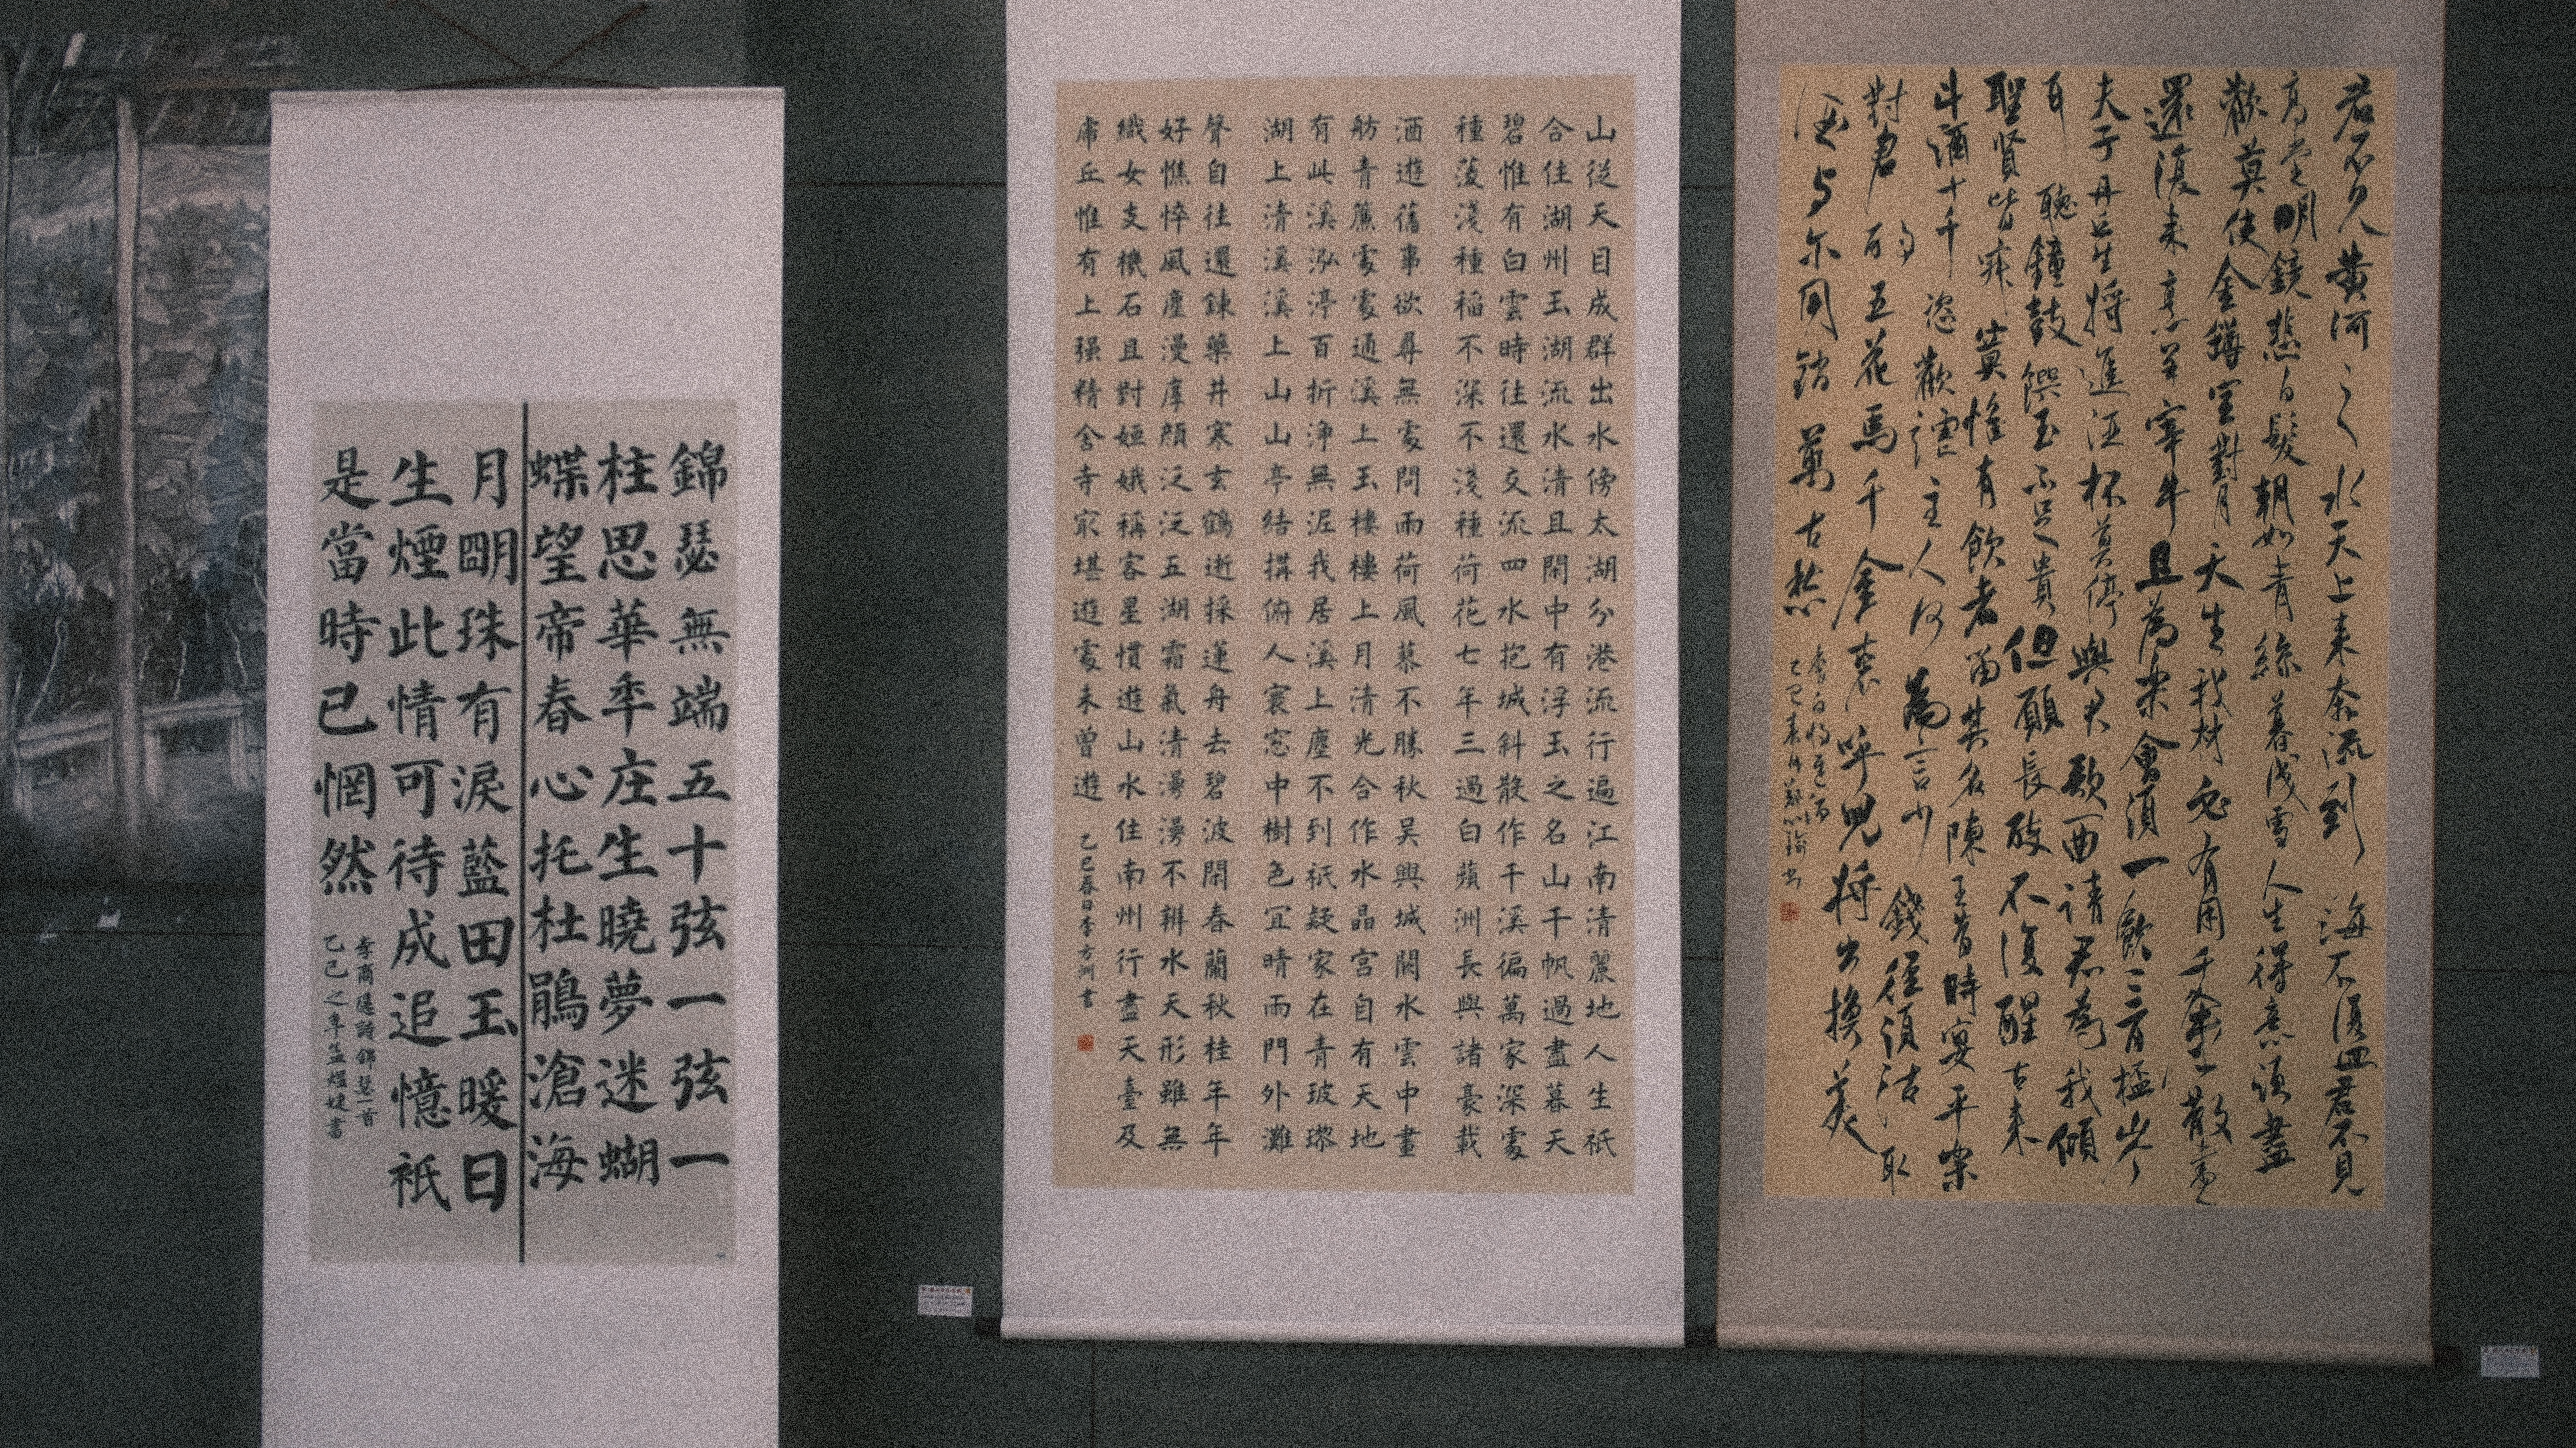 錦瑟無端五十弦一弦一
柱思華年庄生曉夢迷蝴
蝶望帝春心托杜鵑滄海
月明珠有淚藍田玉暖日
生煙此情可待成追憶祇
是當時已惘然
李商隱詩錦瑟一首
乙己之年孟煜婕書
山從天目成群出水傍太湖分港流行遍江南清麗地人生祇
合住湖州玉湖流水清且閑中有浮玉之名山千帆過盡暮天
碧惟有白雲時往還交流四水抱城斜散作千溪徧萬家深處
種菱淺種稻不深不淺種荷花七年三過白蘋洲長與諸豪載
酒遊舊事欲尋無處問雨荷風蓼不勝秋吳興城闕水雲中畫
舫青簾處處通溪上玉樓樓上月清光合作水晶宮自有天地
有此溪泓渟百折淨無泥我居溪上塵不到祇疑家在青玻瓈
湖上清溪溪上山山亭結搆俯人寰窓中樹色宜晴雨門外灘
聲自往還鍊藥井寒玄鶴逝採蓮舟去碧波閑春蘭秋桂年年
好憔悴風塵漫厚顏泛泛五湖霜氣清漫漫不辨水天形雖無
織女支機石且對姮娥稱客星慣遊山水住南州行盡天臺及
虎丘惟有上强精舍寺冣堪遊處未曾遊
乙巳春日李方洲書
君不見黃河之水天上來奔流到海不復回君不見
高堂明鏡悲白髮朝如青絲暮成雪人生得意須盡
歡莫使金罇空對月天生我材必有用千金散盡
還復來烹羊宰牛且為樂會須一飲三百杯岑
夫子丹丘生將進酒杯莫停與君歌一曲請君為我傾
耳聽鐘鼓饌玉不足貴但願長醉不復醒古來
聖賢皆寂寞惟有飲者留其名陳王昔時宴平樂
斗酒十千恣歡謔主人何為言少錢徑須沽取
對君酌五花馬千金裘呼兒將出換美
酒與尔同銷萬古愁
李白將進酒
乙巳春月鄭心瑜書